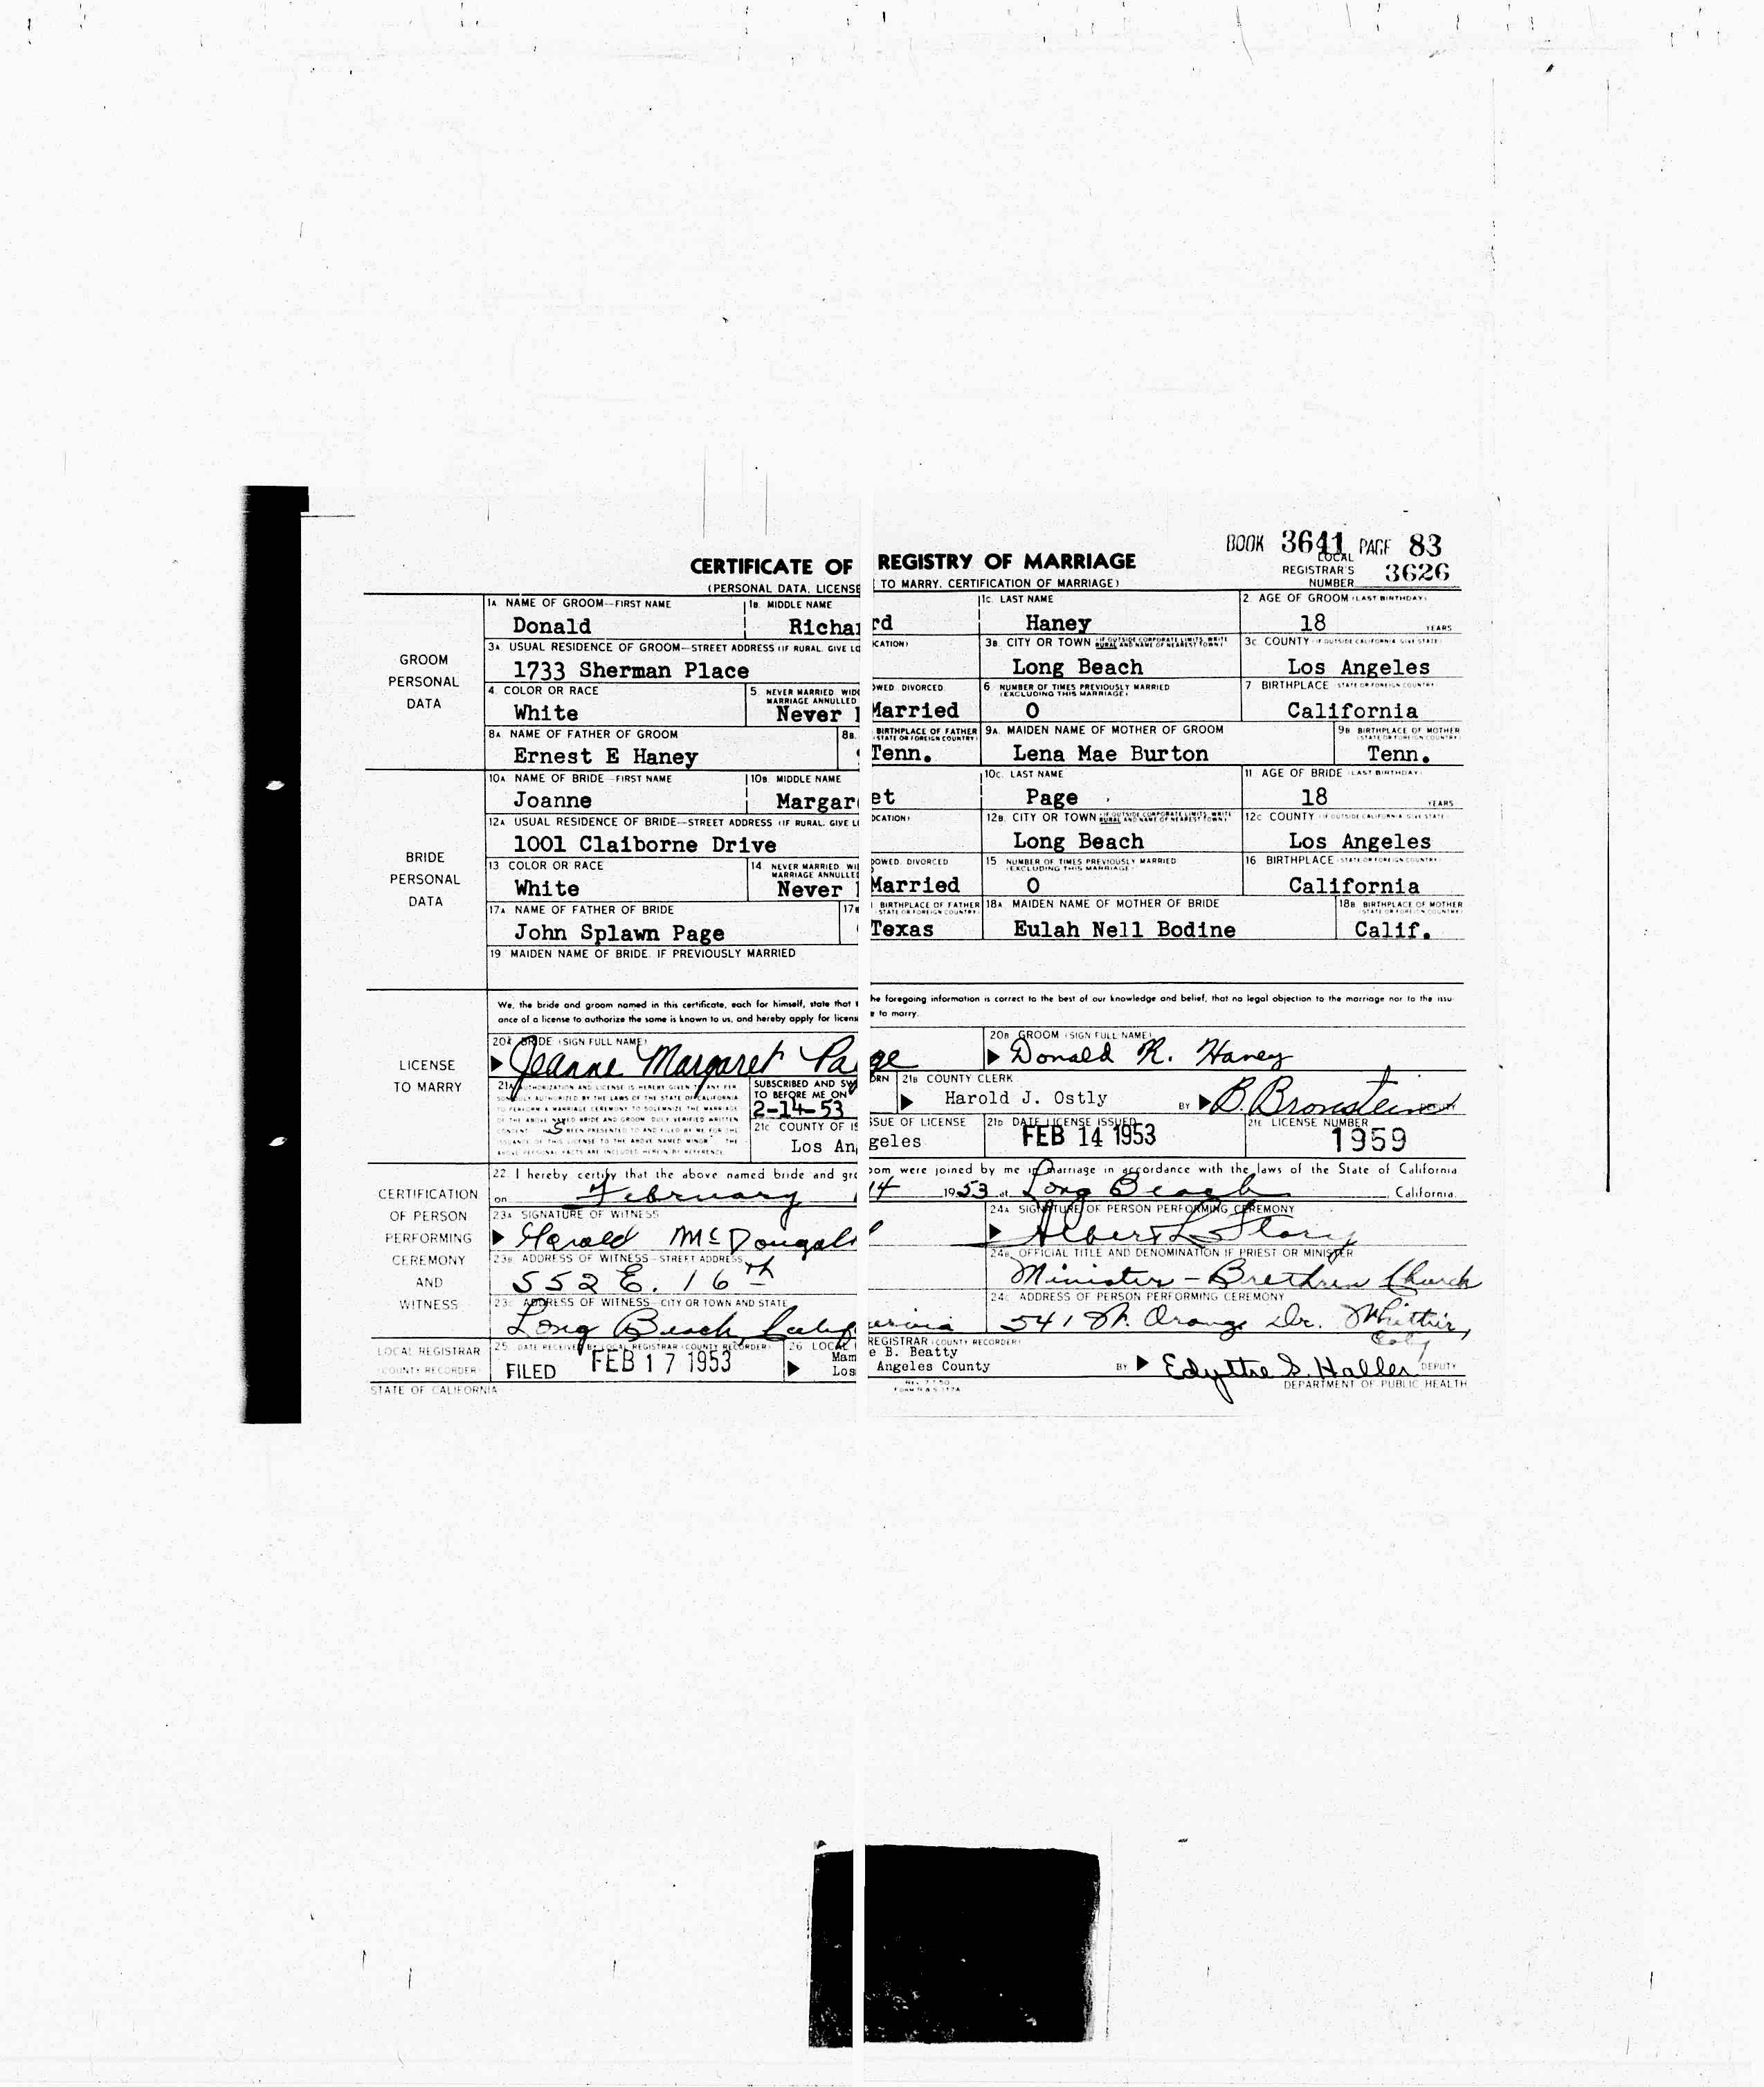 BOOK 3641 PAGE 83
CERTIFICATE OF REGISTRY OF MARRIAGE
LOCAL REGISTRAR'S NUMBER 3626
(PERSONAL DATA, LICENSE TO MARRY, CERTIFICATION OF MARRIAGE)
GROOM PERSONAL DATA
1A. NAME OF GROOM—FIRST NAME 1B. MIDDLE NAME 1C. LAST NAME 2. AGE OF GROOM (LAST BIRTHDAY)
Donald Richard Haney 18 YEARS
3A. USUAL RESIDENCE OF GROOM—STREET ADDRESS (IF RURAL, GIVE LOCATION) 3B. CITY OR TOWN (IF OUTSIDE CORPORATE LIMITS, WRITE RURAL AND NAME OF NEAREST TOWN) 3C. COUNTY (IF OUTSIDE CALIFORNIA, GIVE STATE)
1733 Sherman Place Long Beach Los Angeles
4. COLOR OR RACE 5. NEVER MARRIED, WIDOWED, DIVORCED, MARRIAGE ANNULLED 6. NUMBER OF TIMES PREVIOUSLY MARRIED (EXCLUDING THIS MARRIAGE) 7. BIRTHPLACE (STATE OR FOREIGN COUNTRY)
White Never Married 0 California
8A. NAME OF FATHER OF GROOM 8B. BIRTHPLACE OF FATHER (STATE OR FOREIGN COUNTRY) 9A. MAIDEN NAME OF MOTHER OF GROOM 9B. BIRTHPLACE OF MOTHER (STATE OR FOREIGN COUNTRY)
Ernest E Haney Tenn. Lena Mae Burton Tenn.
BRIDE PERSONAL DATA
10A. NAME OF BRIDE—FIRST NAME 10B. MIDDLE NAME 10C. LAST NAME 11. AGE OF BRIDE (LAST BIRTHDAY)
Joanne Margaret Page 18 YEARS
12A. USUAL RESIDENCE OF BRIDE—STREET ADDRESS (IF RURAL, GIVE LOCATION) 12B. CITY OR TOWN (IF OUTSIDE CORPORATE LIMITS, WRITE RURAL AND NAME OF NEAREST TOWN) 12C. COUNTY (IF OUTSIDE CALIFORNIA, GIVE STATE)
1001 Claiborne Drive Long Beach Los Angeles
13. COLOR OR RACE 14. NEVER MARRIED, WIDOWED, DIVORCED, MARRIAGE ANNULLED 15. NUMBER OF TIMES PREVIOUSLY MARRIED (EXCLUDING THIS MARRIAGE) 16. BIRTHPLACE (STATE OR FOREIGN COUNTRY)
White Never Married 0 California
17A. NAME OF FATHER OF BRIDE 17B. BIRTHPLACE OF FATHER (STATE OR FOREIGN COUNTRY) 18A. MAIDEN NAME OF MOTHER OF BRIDE 18B. BIRTHPLACE OF MOTHER (STATE OR FOREIGN COUNTRY)
John Splawn Page Texas Eulah Nell Bodine Calif.
19. MAIDEN NAME OF BRIDE, IF PREVIOUSLY MARRIED
LICENSE TO MARRY
We, the bride and groom named in this certificate, each for himself, state that the foregoing information is correct to the best of our knowledge and belief, that no legal objection to the marriage nor to the issu-
ance of a license to authorize the same is known to us, and hereby apply for license to marry.
20A. BRIDE (SIGN FULL NAME) 20B. GROOM (SIGN FULL NAME)
Jeanne Margaret Page Donald R. Haney
21A. AUTHORIZATION AND LICENSE IS HEREBY GIVEN TO ANY PERSON DULY AUTHORIZED BY THE LAWS OF THE STATE OF CALIFORNIA TO PERFORM A MARRIAGE CEREMONY TO SOLEMNIZE THE MARRIAGE OF THE ABOVE NAMED BRIDE AND GROOM. DULY VERIFIED WRITTEN CONSENT S BEEN PRESENTED TO AND FILED BY ME FOR THE ISSUANCE OF THIS LICENSE TO THE ABOVE NAMED MINOR. THE ABOVE PERSONAL FACTS ARE INCLUDED HEREIN BY REFERENCE.
SUBSCRIBED AND SWORN TO BEFORE ME ON 2-14-53
21B. COUNTY CLERK
Harold J. Ostly BY B. Bronstein DEPUTY
21C. COUNTY OF ISSUE OF LICENSE 21D. DATE LICENSE ISSUED 21E. LICENSE NUMBER
Los Angeles FEB 14 1953 1959
CERTIFICATION OF PERSON PERFORMING CEREMONY AND WITNESS
22. I hereby certify that the above named bride and groom were joined by me in marriage in accordance with the laws of the State of California
on February 14 1953 at Long Beach, California.
23A. SIGNATURE OF WITNESS 24A. SIGNATURE OF PERSON PERFORMING CEREMONY
Harold McDougall Albert L Flory
23B. ADDRESS OF WITNESS—STREET ADDRESS 24B. OFFICIAL TITLE AND DENOMINATION IF PRIEST OR MINISTER
552 E. 16th Minister – Brethren Church
23C. ADDRESS OF WITNESS—CITY OR TOWN AND STATE 24C. ADDRESS OF PERSON PERFORMING CEREMONY
Long Beach, California 541 N. Orange Dr. Whittier,
LOCAL REGISTRAR (COUNTY RECORDER)
25. DATE RECEIVED BY LOCAL REGISTRAR (COUNTY RECORDER) 26. LOCAL REGISTRAR (COUNTY RECORDER)
FILED FEB 17 1953 Mame B. Beatty
Los Angeles County BY Edythe S. Haller DEPUTY
STATE OF CALIFORNIA DEPARTMENT OF PUBLIC HEALTH